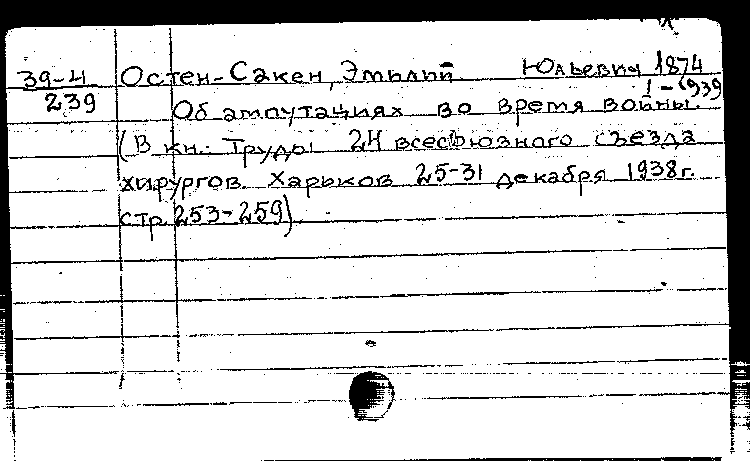 39-4 Остен-Сакен, Эмилий Юльевич 1874
239 1-1939
Об ампутациях во время войны.
(В кн.: Труды 24 всесоюзного съезда
хирургов. Харьков 25-31 декабря 1938г.
стр. 253-259).